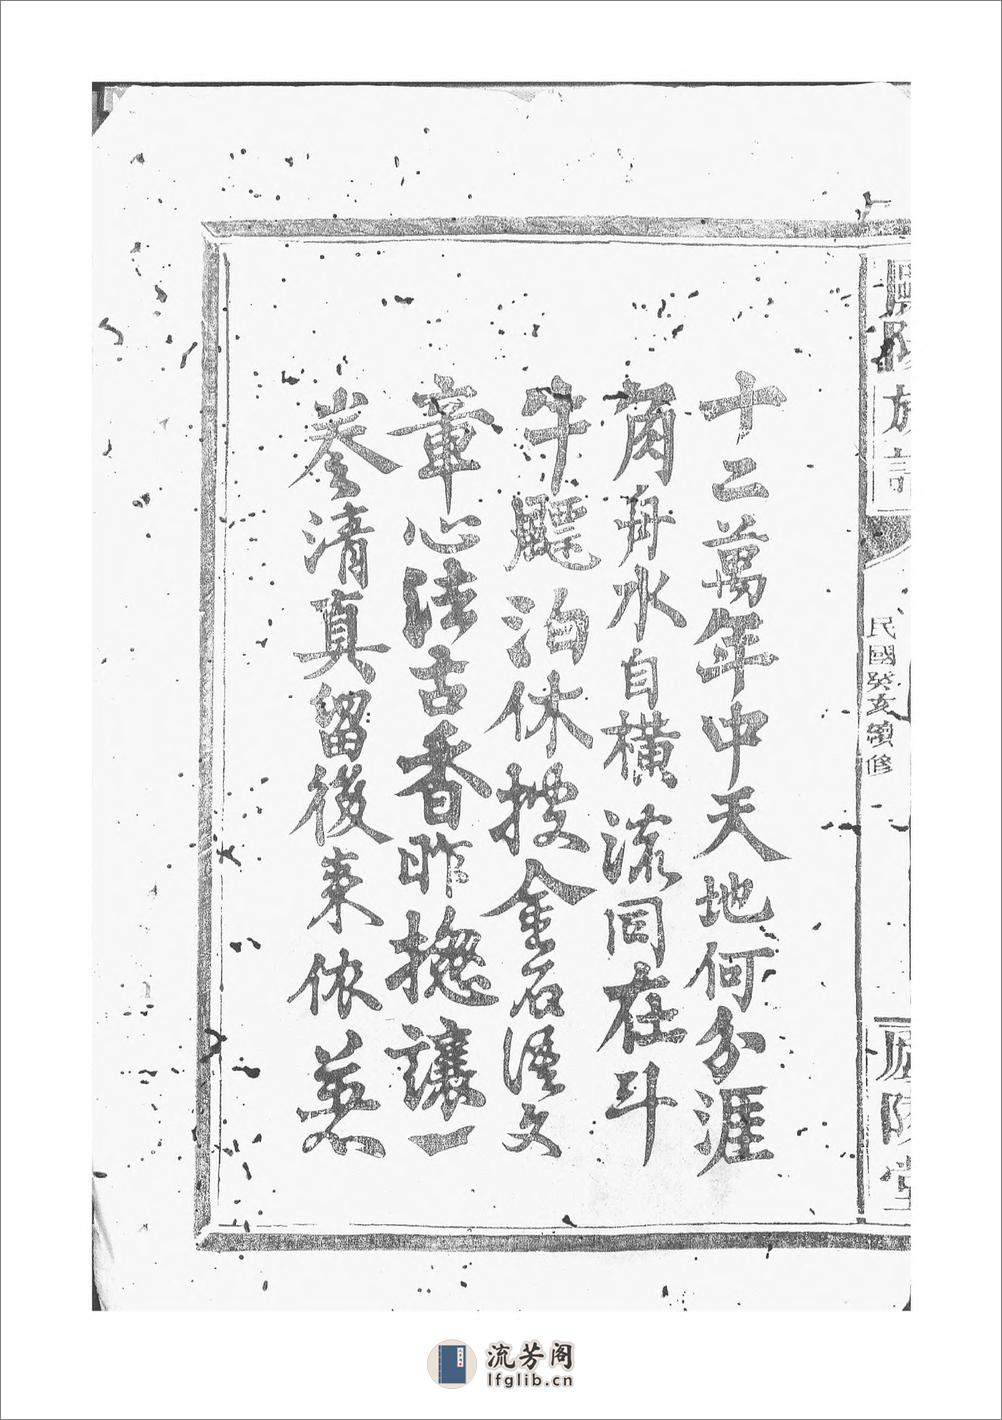 族譜
民國癸亥續修
廬陵堂
十二萬年中天地何分涯
角舟水自橫流同在斗
牛飄泊休搜金石語文
章心法古香昨摠讓一
拳清真留後來依慕
流芳阁
lfglib.cn